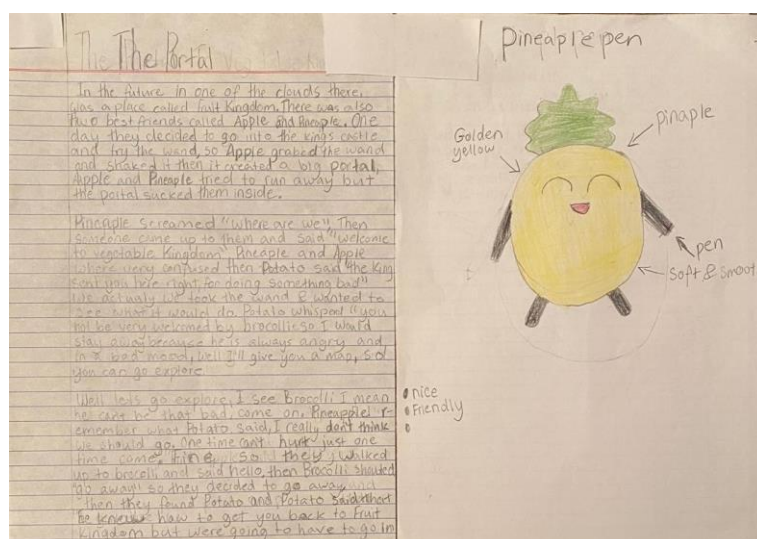 The Portal
In the future in one of the clouds there
was a place called Fruit Kingdom. There was also
two best friends called Apple and Pineaple. One
day they decided to go into the kings castle
and try the wand, so Apple grabed the wand
and shaked it then it created a big portal,
Apple and Pineaple tried to run away but
the portal sucked them inside.
Pineaple screamed "where are we". Then
someone came up to them and said "welcome
to vegetable Kingdom" Pineaple and Apple
where very confused then Potato said "the King
sent you here right for doing something bad"
we actualy we took the wand & wanted to
see what it would do. Potato whisped "you
not be very welcomed by brocolli so I would
stay away because he is always angry and
in a bad mood, well I'll give you a map, so
you can go explore
Well lets go explore, I see Brocolli I mean
he can't be that bad, come on. Pineapple r-
emember what Potato said, I really don't think
we should go. One time can't hurt just one
time come. Fine, so they walked
up to brocolli and said hello, then Brocolli shouted
go away" so they decided to go away and
then they found Potato and Potato said that
he knew how to get you back to Fruit
Kingdom but were going to have to go in
Pineaple pen
pinaple
Golden
yellow
pen
Soft & Smoot
nice
Friendly